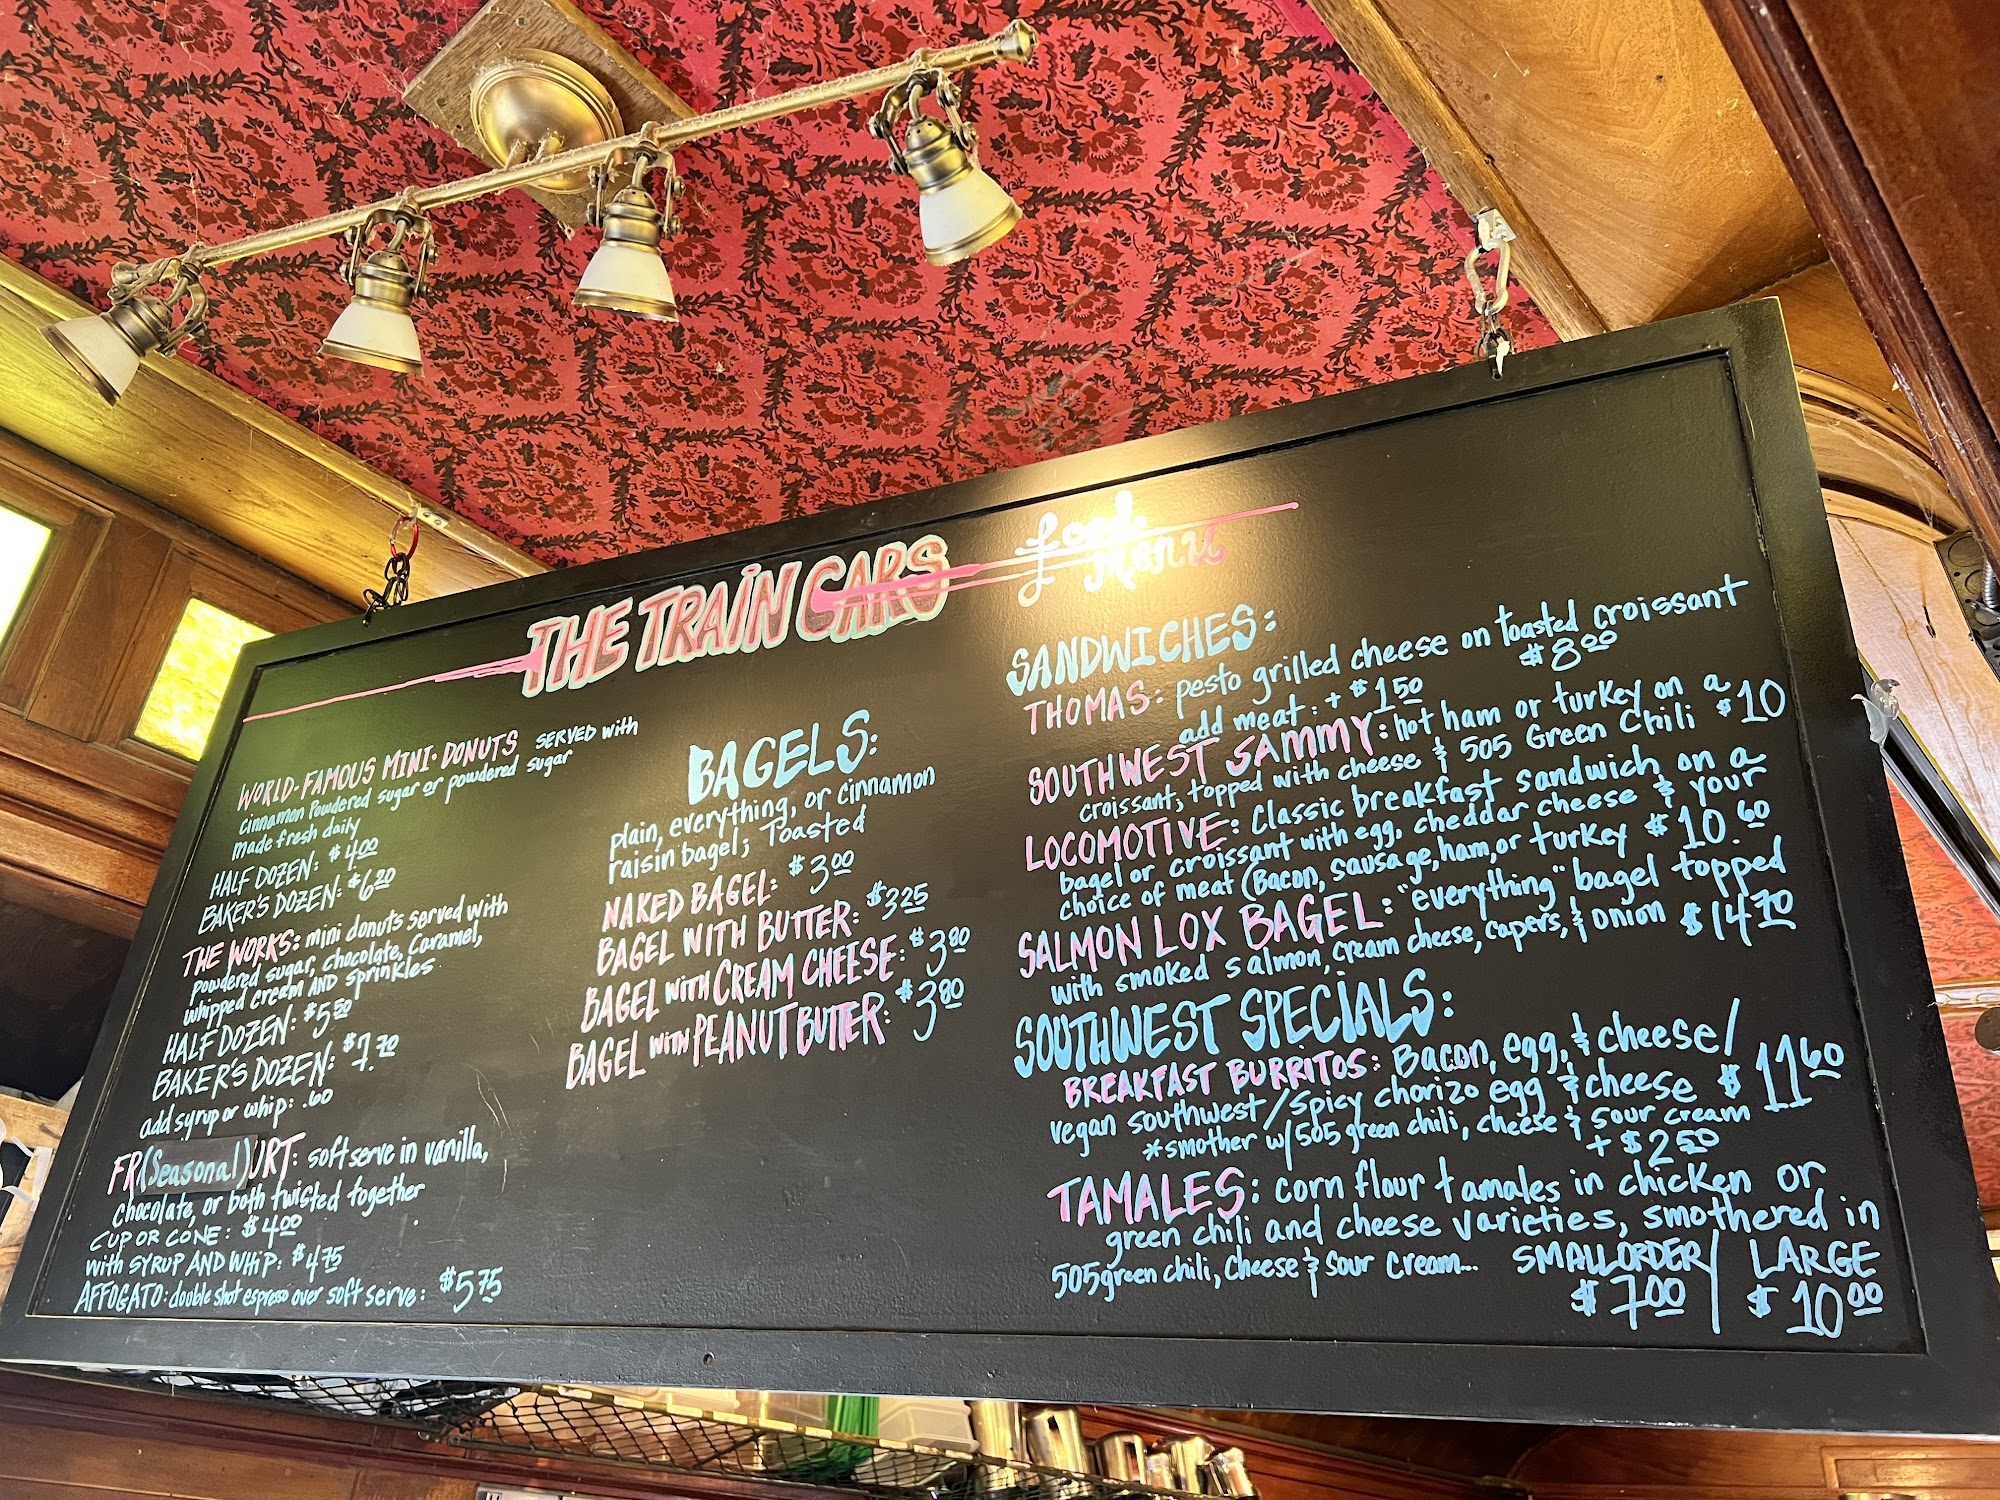 THE TRAIN CARS
Food
Menu
WORLD-FAMOUS MINI·DONUTS SERVED with
cinnamon powdered sugar or powdered sugar
made fresh daily
HALF DOZEN: $4.00
BAKER'S DOZEN: $6.20
THE WORKS: mini donuts served with
powdered sugar, chocolate, caramel,
whipped cream AND sprinkles
HALF DOZEN: $5.50
BAKER'S DOZEN: $7.70
add syrup or whip: .60
FR(Seasonal)URT: soft serve in vanilla,
chocolate, or both twisted together
CUP OR CONE: $4.00
with SYRUP AND WHIP: $4.75
AFFOGATO: double shot espresso over soft serve: $5.75
BAGELS:
plain, everything, or cinnamon
raisin bagel; Toasted
NAKED BAGEL: $3.00
BAGEL WITH BUTTER: $3.25
BAGEL WITH CREAM CHEESE: $3.80
BAGEL WITH PEANUT BUTTER: $3.80
SANDWICHES:
THOMAS: pesto grilled cheese on toasted croissant
$8.00
add meat: + $1.50
SOUTHWEST SAMMY: hot ham or turkey on a
croissant; topped with cheese & 505 Green Chili $10
LOCOMOTIVE: Classic breakfast sandwich on a
bagel or croissant with egg, cheddar cheese & your
choice of meat (Bacon, sausage, ham, or turkey $10.60
SALMON LOX BAGEL: "everything" bagel topped
with smoked salmon, cream cheese, capers, & onion $14.70
SOUTHWEST SPECIALS:
BREAKFAST BURRITOS: Bacon, egg, & cheese/
vegan southwest/spicy chorizo egg & cheese $11.60
*smother w/505 green chili, cheese & sour cream
+ $2.50
TAMALES: corn flour tamales in chicken or
green chili and cheese varieties, smothered in
505 green chili, cheese & sour cream... SMALL ORDER/ LARGE
$7.00/ $10.00